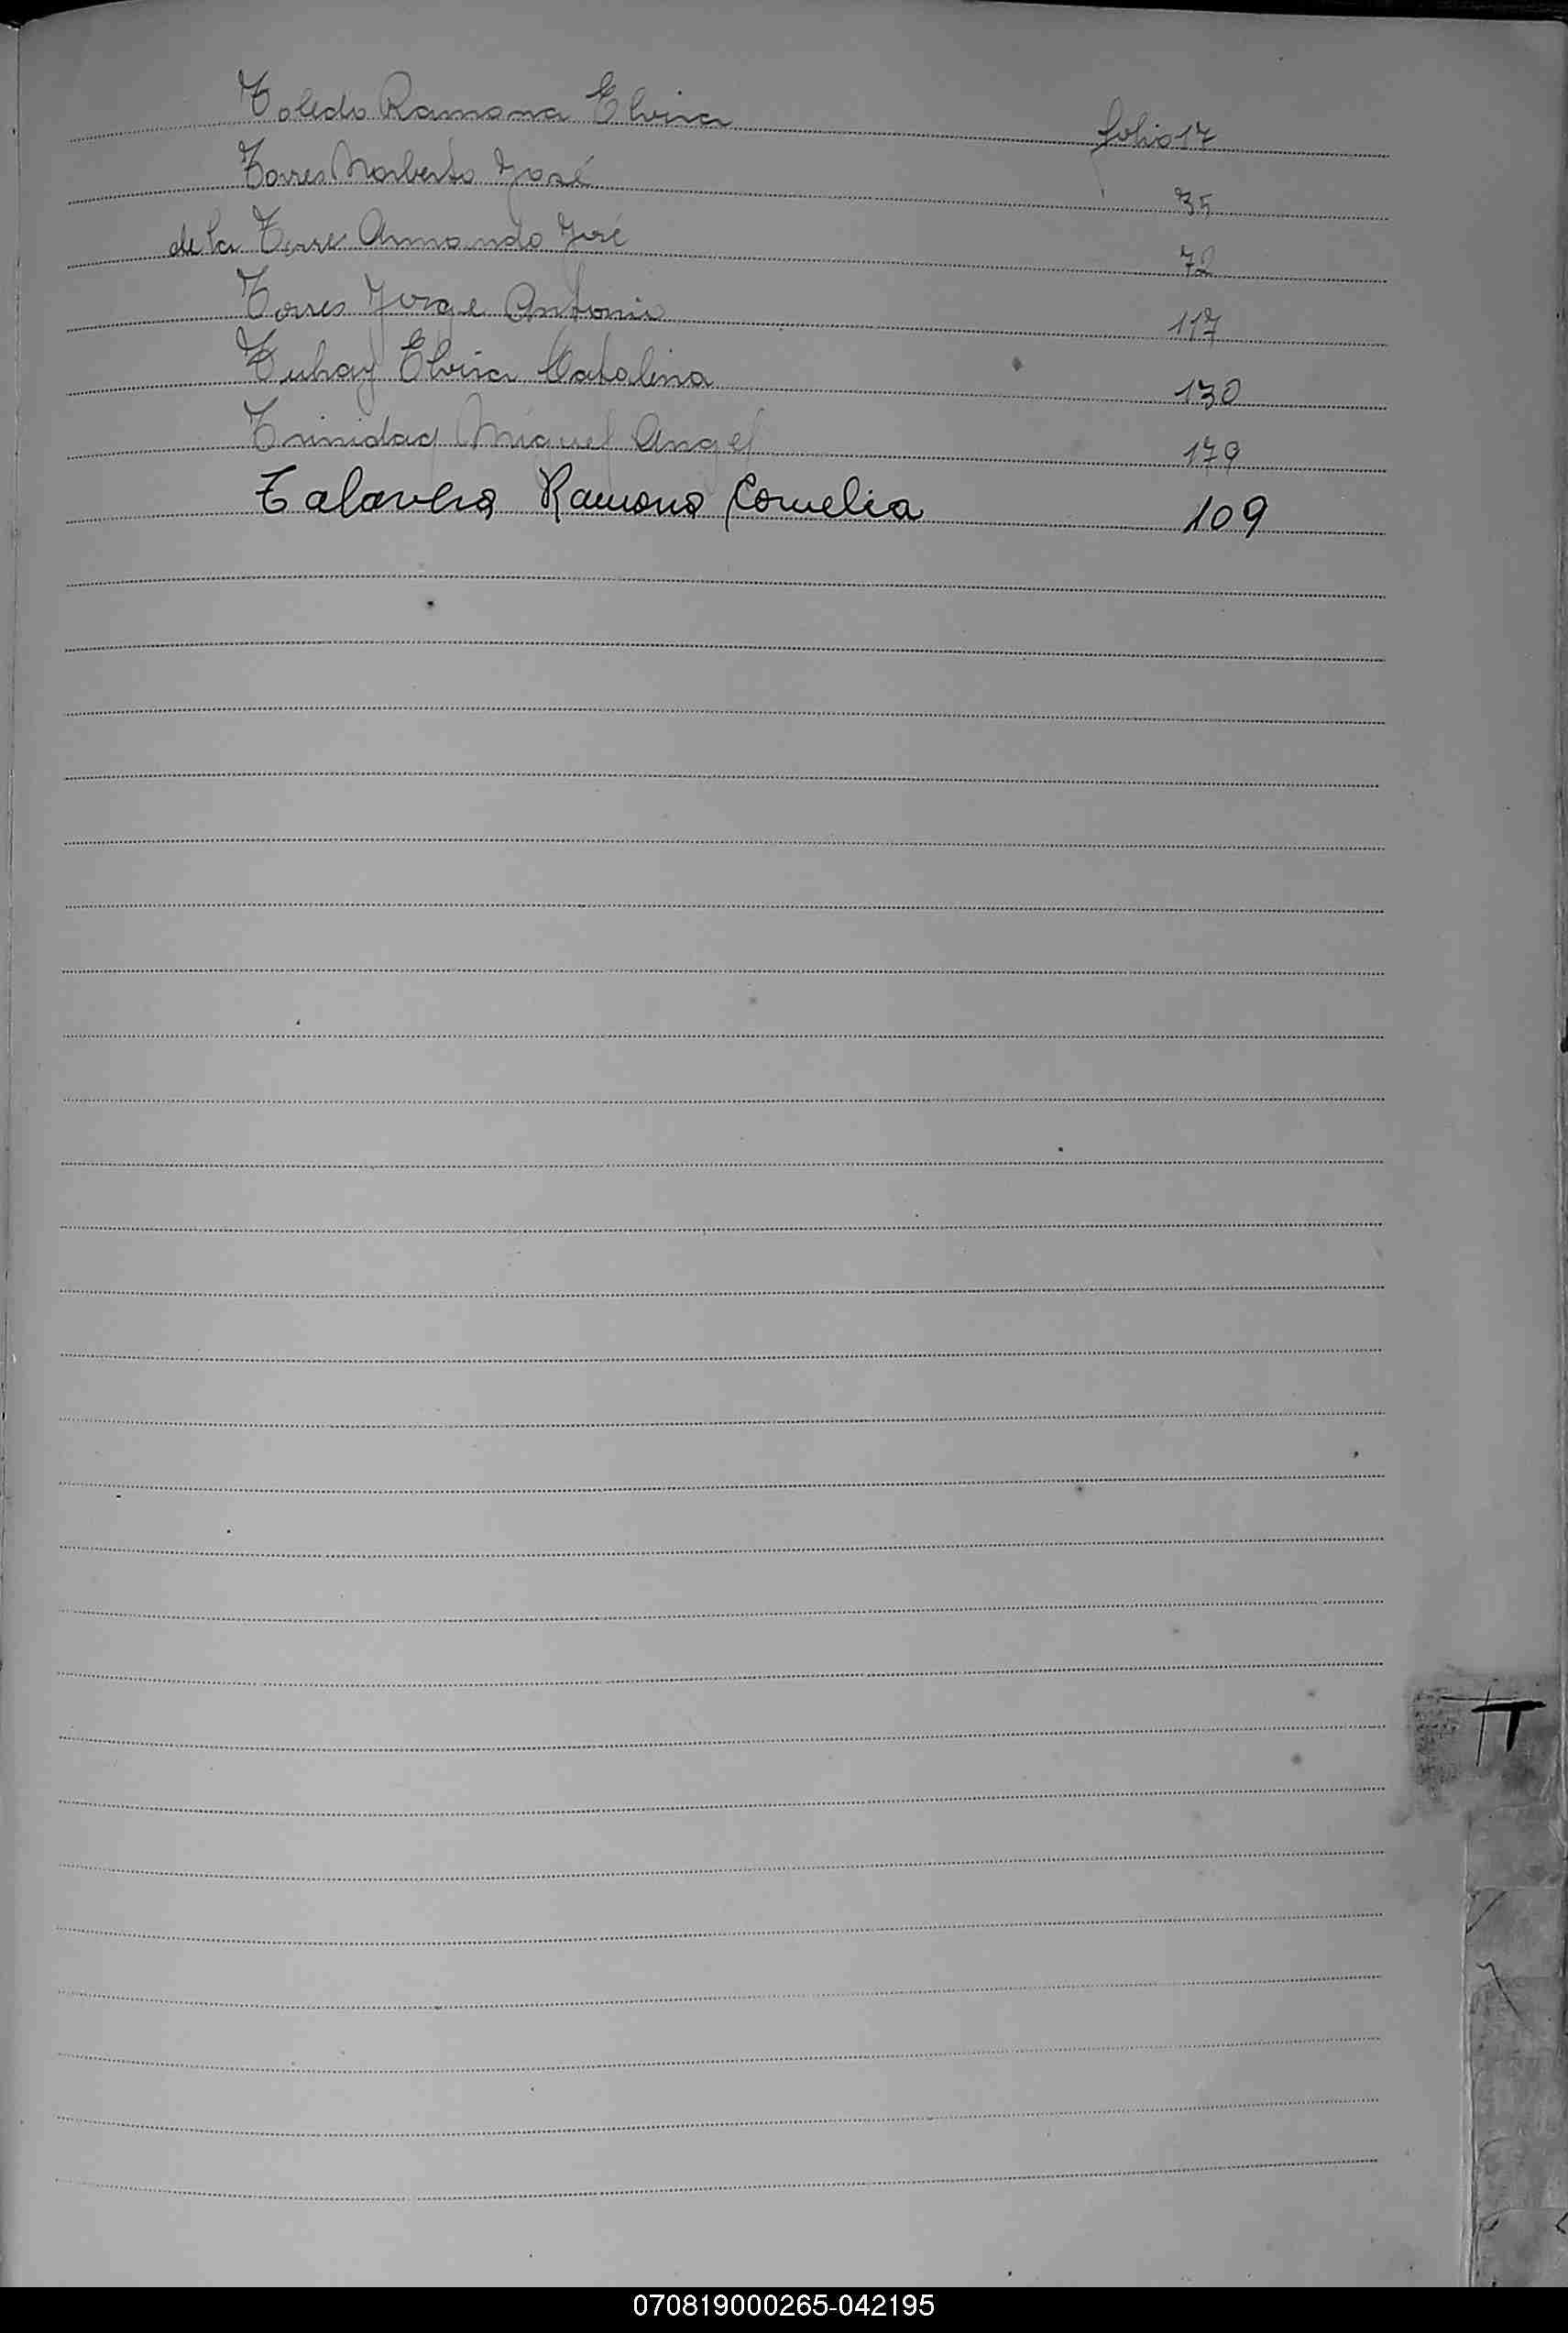 Toledo Ramona Elvira folio 17
Torres Norberto José 35
de la Torre Armando José 72
Torres Jorge Antonio 117
Elvira Catalina 130
Trinidad Miguel Angel 179
Talavera Ramona Cornelia 109
T
070819000265-042195